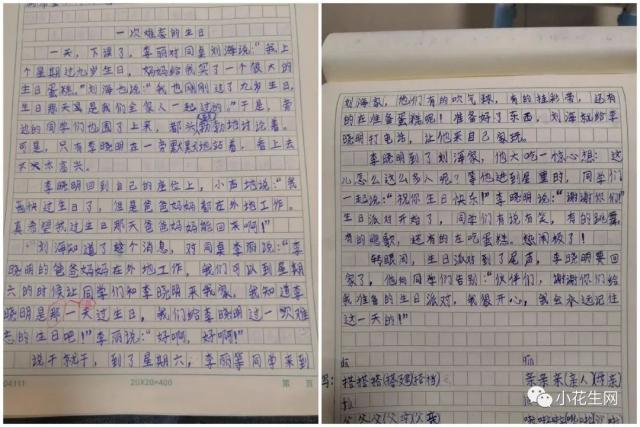 一次难忘的生日
一天，下课了，李丽对同桌刘海说："我上
个星期过九岁生日，妈妈给我买了一个很大的
生日蛋糕。"刘海也说："我也刚刚过了九岁生日，
生日那天是我们全家人一起过的。"于是，旁
边的同学们也围了上来，都头勃勃地讨论着。
可是，只有李晓明在一旁默默地站着，看上去
不高兴。
李晓明回到自己的座位上，小声地说："我
也快过生日了，但是爸爸妈妈都在外地工作。
真希望我过生日那天爸爸妈妈能回来啊！"
刘海知道了整个消息，对同桌李丽说："李
晓明的爸爸妈妈在外地工作，我们可以到星期
六的时候让同学们和李晓明来我家，我知道李
晓明是那一天过生日，我们给李晓明过一次难
忘的生日吧！"李丽说："好啊，好啊！"
说干就干，到了星期六，李丽等同学来到
04111
20×20=400
第 页
刘海家，他们有的吹气球，有的挂彩带，还有
的在准备蛋糕呢！准备好了东西，刘海就给李
晓明打电话，让他来自己家玩。
李晓明到了刘海家，他大吃一惊心想：这
儿怎么这么多人呢？等他进到屋里时，同学们
一起说："祝你生日快乐！"李晓明说："谢谢你们！"
生日派对开始了，同学们有说有笑，有的跳舞，
有的唱歌，还有的在吃蛋糕。热闹极了！
转眼间，生日派对到了尾声，李晓明要回
家了，他向同学们告别："伙伴们，谢谢你们给
我准备的生日派对，我很开心，我会永远记住
这一天的！"
搭搭搭(搭建)(搭档)
亲亲亲(亲人)(母亲)
父父父(父母)(父亲)
小花生网